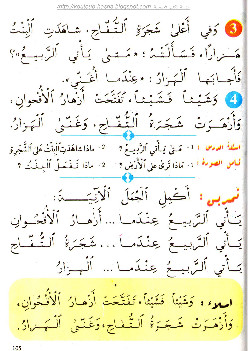 3 وَفِي أَعْلَى شَجَرَةِ التُّفَّاحِ، شَاهَدَتِ الْبِنْتُ
هَزَارًا، فَسَأَلَتْهُ: «مَتَى يَأْتِي الرَّبِيعُ»؟
فَأَجَابَهَا الْهَزَارُ: «عِنْدَمَا أُغَنِّي».
4 وَشَيْئًا فَشَيْئًا، تَفَتَّحَتْ أَزْهَارُ الْأُقْحُوَانِ،
وَأَزْهَرَتْ شَجَرَةُ التُّفَّاحِ، وَغَنَّى الْهَزَارُ.
أسئلة الدرس: 1- مَتَى يَأْتِي الرَّبِيعُ؟ 2- مَاذَا شَاهَدَتِ الْبِنْتُ عَلَى الشَّجَرَةِ
تأمل الصورة: 1- مَاذَا تَرَى عَلَى الْأَرْضِ؟ 2- مَاذَا تَفْعَلُ الْبِنْتُ؟
تمرين: أَكْمِلِ الْجُمَلَ الْآتِيَةَ:
يَأْتِي الرَّبِيعُ عِنْدَمَا ... أَزْهَارُ الْأُقْحُوَانِ
يَأْتِي الرَّبِيعُ عِنْدَمَا ... شَجَرَةُ التُّفَّاحِ
يَأْتِي الرَّبِيعُ عِنْدَمَا ... الْهَزَارُ
إملاء: وَشَيْئًا فَشَيْئًا، تَفَتَّحَتْ أَزْهَارُ الْأُقْحُوَانِ،
وَأَزْهَرَتْ شَجَرَةُ التُّفَّاحِ، وَغَنَّى الْهَزَارُ.
105